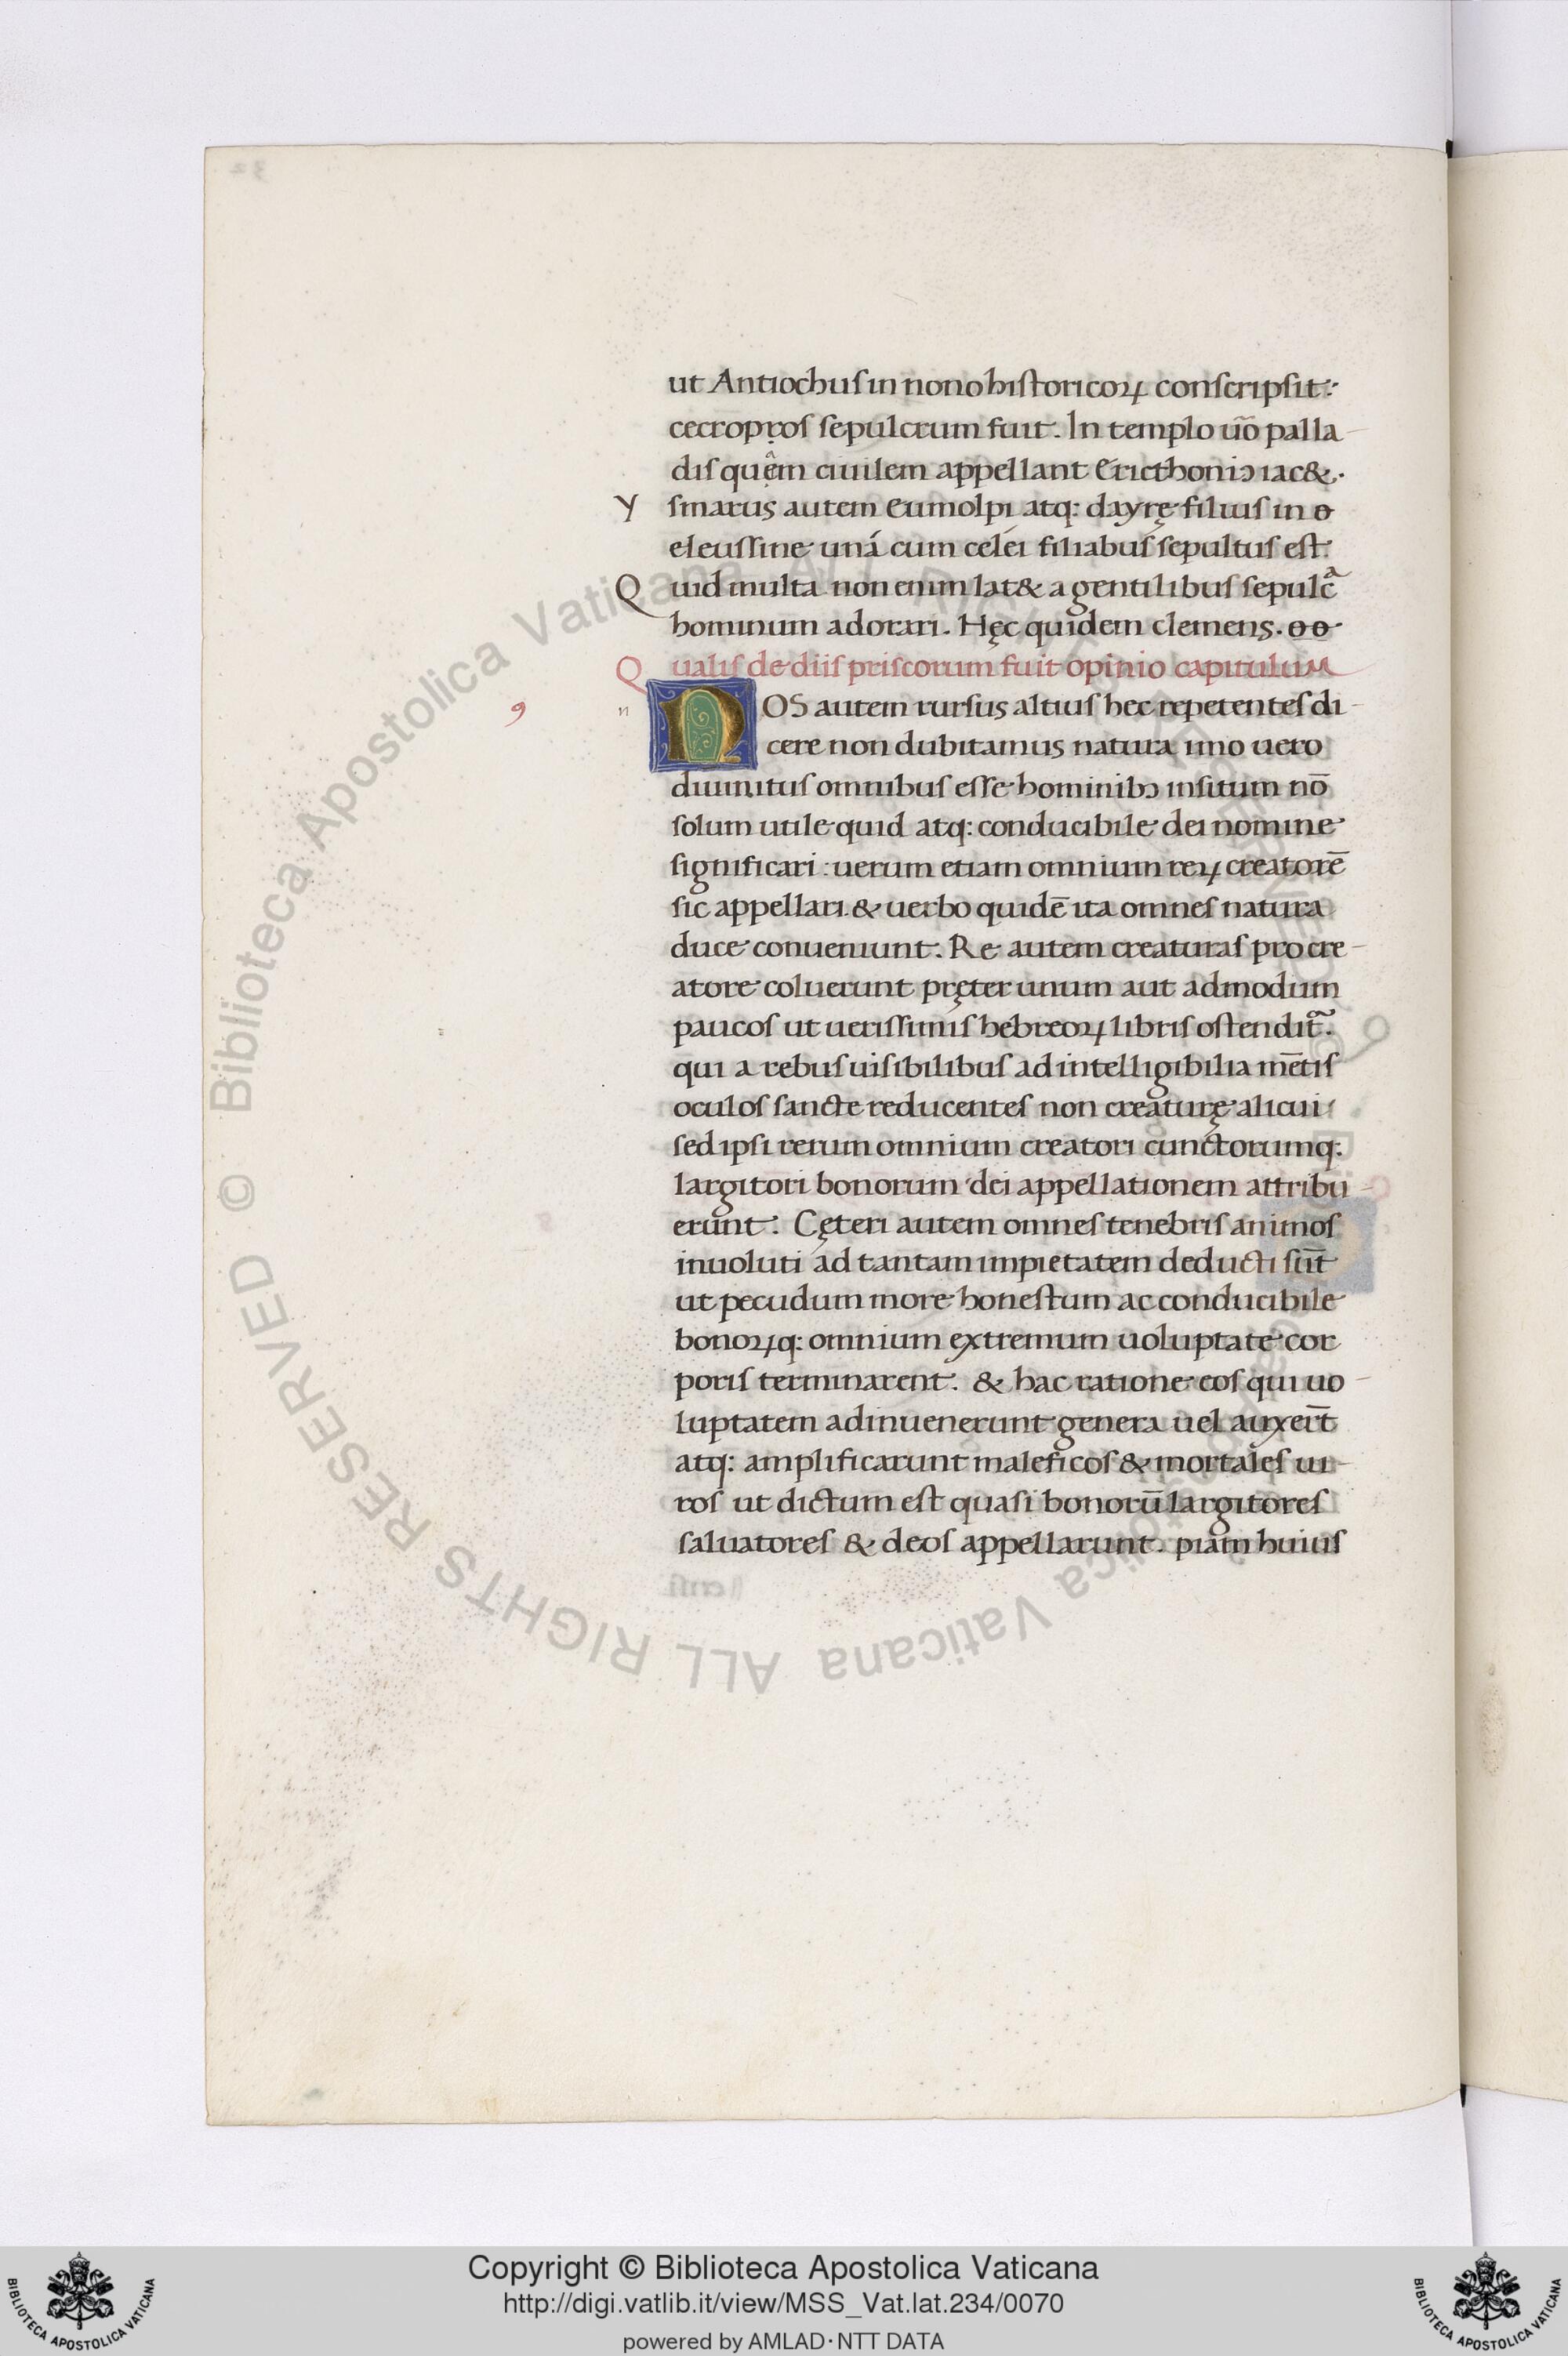 ut Antiochus in nono historicoꝝ conscripsit:
cecropros sepulcrum fuit. In templo uo᷈ palla
dis quẽm ciuilem appellant Ericthoniꝰ iac&.
Ysmarus autem Eumolpi atq: dayrę filius in o
eleussine uná cum celei filiabus sepultus est.
Quid multa non enim lat& a gentilibus sepulc̄ᵃ
hominum adorari. Hęc quidem clemens. o o
Qualis de diis priscorum fuit opinio capitulum
9 n NOS autem rursus altius hec repetentes di
cere non dubitamus natura imo uero
diuinitus omnibus esse hominibꝰ insitum nō
solum utile quid atq: conducibile dei nomine
significari: uerum etiam omnium reꝝ creatorē
sic appellari. & uerbo quidē ita omnes natura
duce conueniunt. Re autem creaturas pro cre
atore coluerunt pręter unum aut admodum
paucos ut uerissimis hebreoꝝ libris ostendit᷑.
qui a rebus uisibilibus ad intelligibilia mētis
oculos sancte reducentes non creaturę alicui
sed ipsi rerum omnium creatori cunctorumq:
largitori bonorum dei appellationem attribu
erunt. Cęteri autem omnes tenebris animos
inuoluti ad tantam impietatem deducti sūt
ut pecudum more honestum ac conducibile
bonoꝝq: omnium extremum uoluptate cor
poris terminarent. & hac ratione eos qui uo
luptatem adinuenerunt genera uel auxer̄t
atq: amplificarunt maleficos & mortales ui
ros ut dictum est quasi bonorū largitores
saluatores & deos appellarunt. piam huius
© Biblioteca Apostolica Vaticana ALL RIGHTS RESERVED
BIBLIOTECA APOSTOLICA VATICANA
Copyright © Biblioteca Apostolica Vaticana
http://digi.vatlib.it/view/MSS_Vat.lat.234/0070
powered by AMLAD·NTT DATA
BIBLIOTECA APOSTOLICA VATICANA